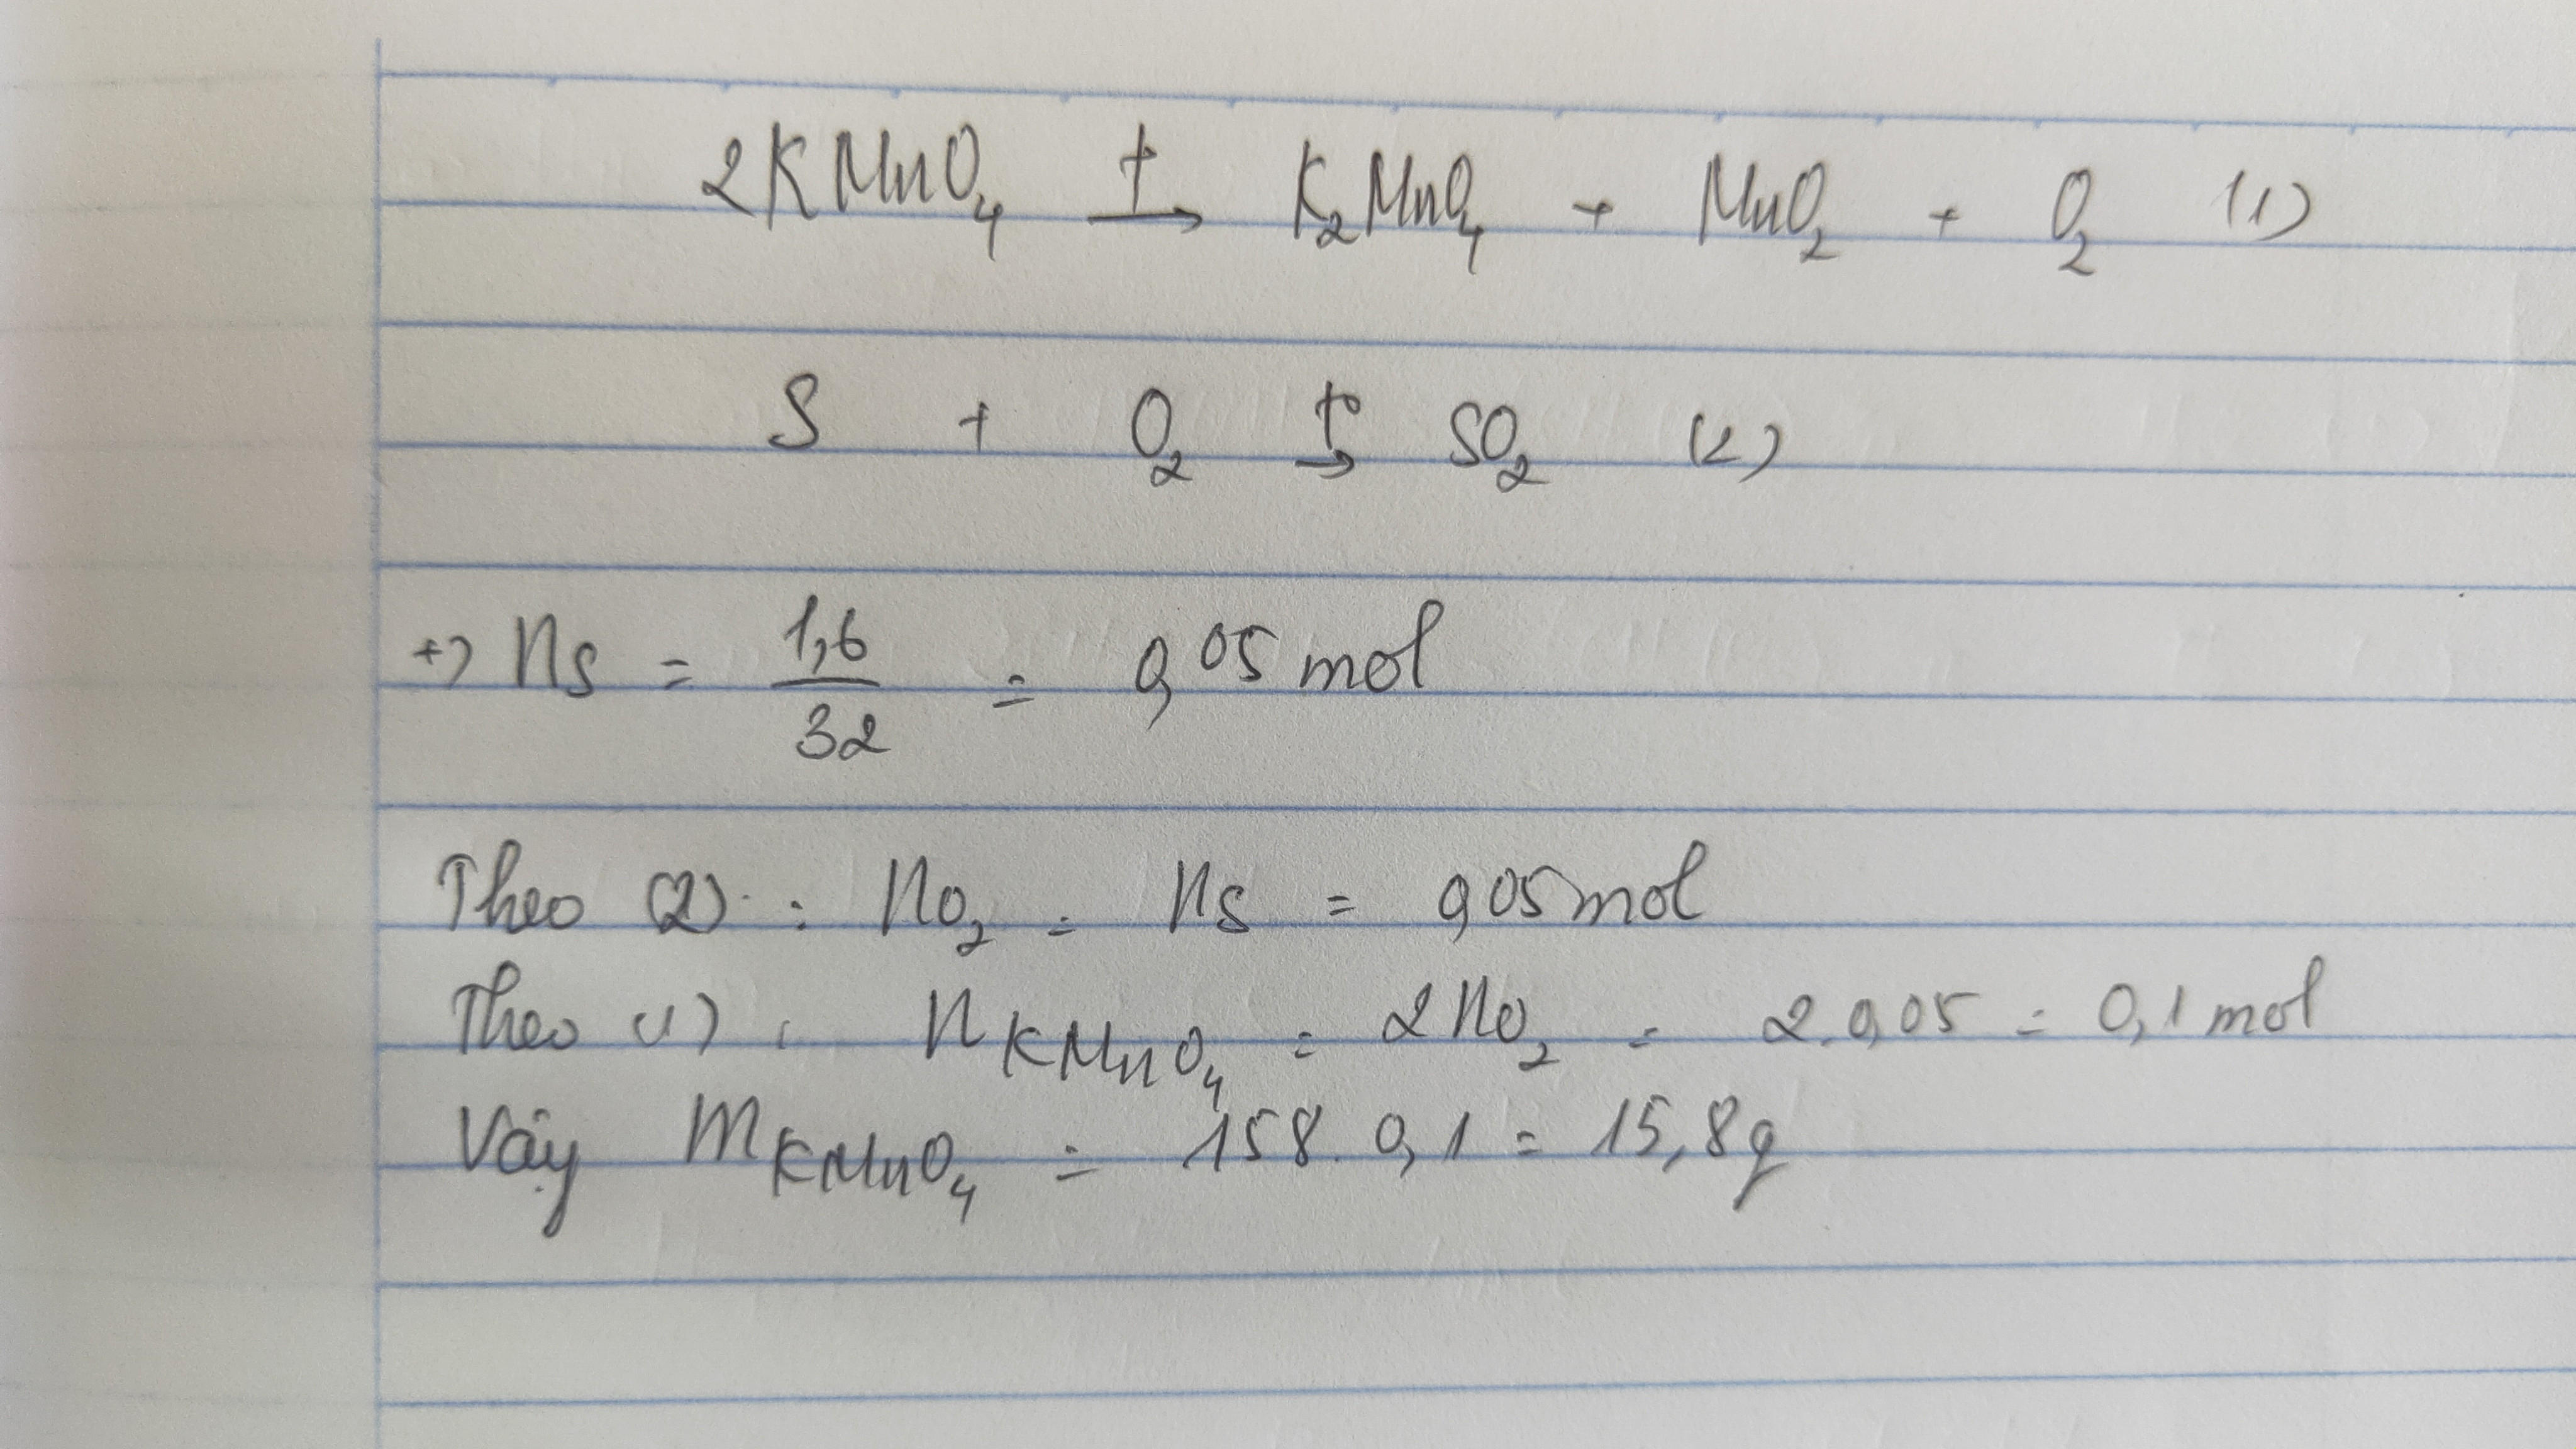 2KMnO₄ →(t) K₂MnO₄ + MnO₂ + O₂ (1)
S + O₂ →(t°) SO₂ (2)
+) nS = 1,6/32 = 0,05 mol
Theo (2) : nO₂ = nS = 0,05 mol
Theo (1) : nKMnO₄ = 2nO₂ = 2.0,05 = 0,1 mol
Vậy mKMnO₄ = 158.0,1 = 15,8g